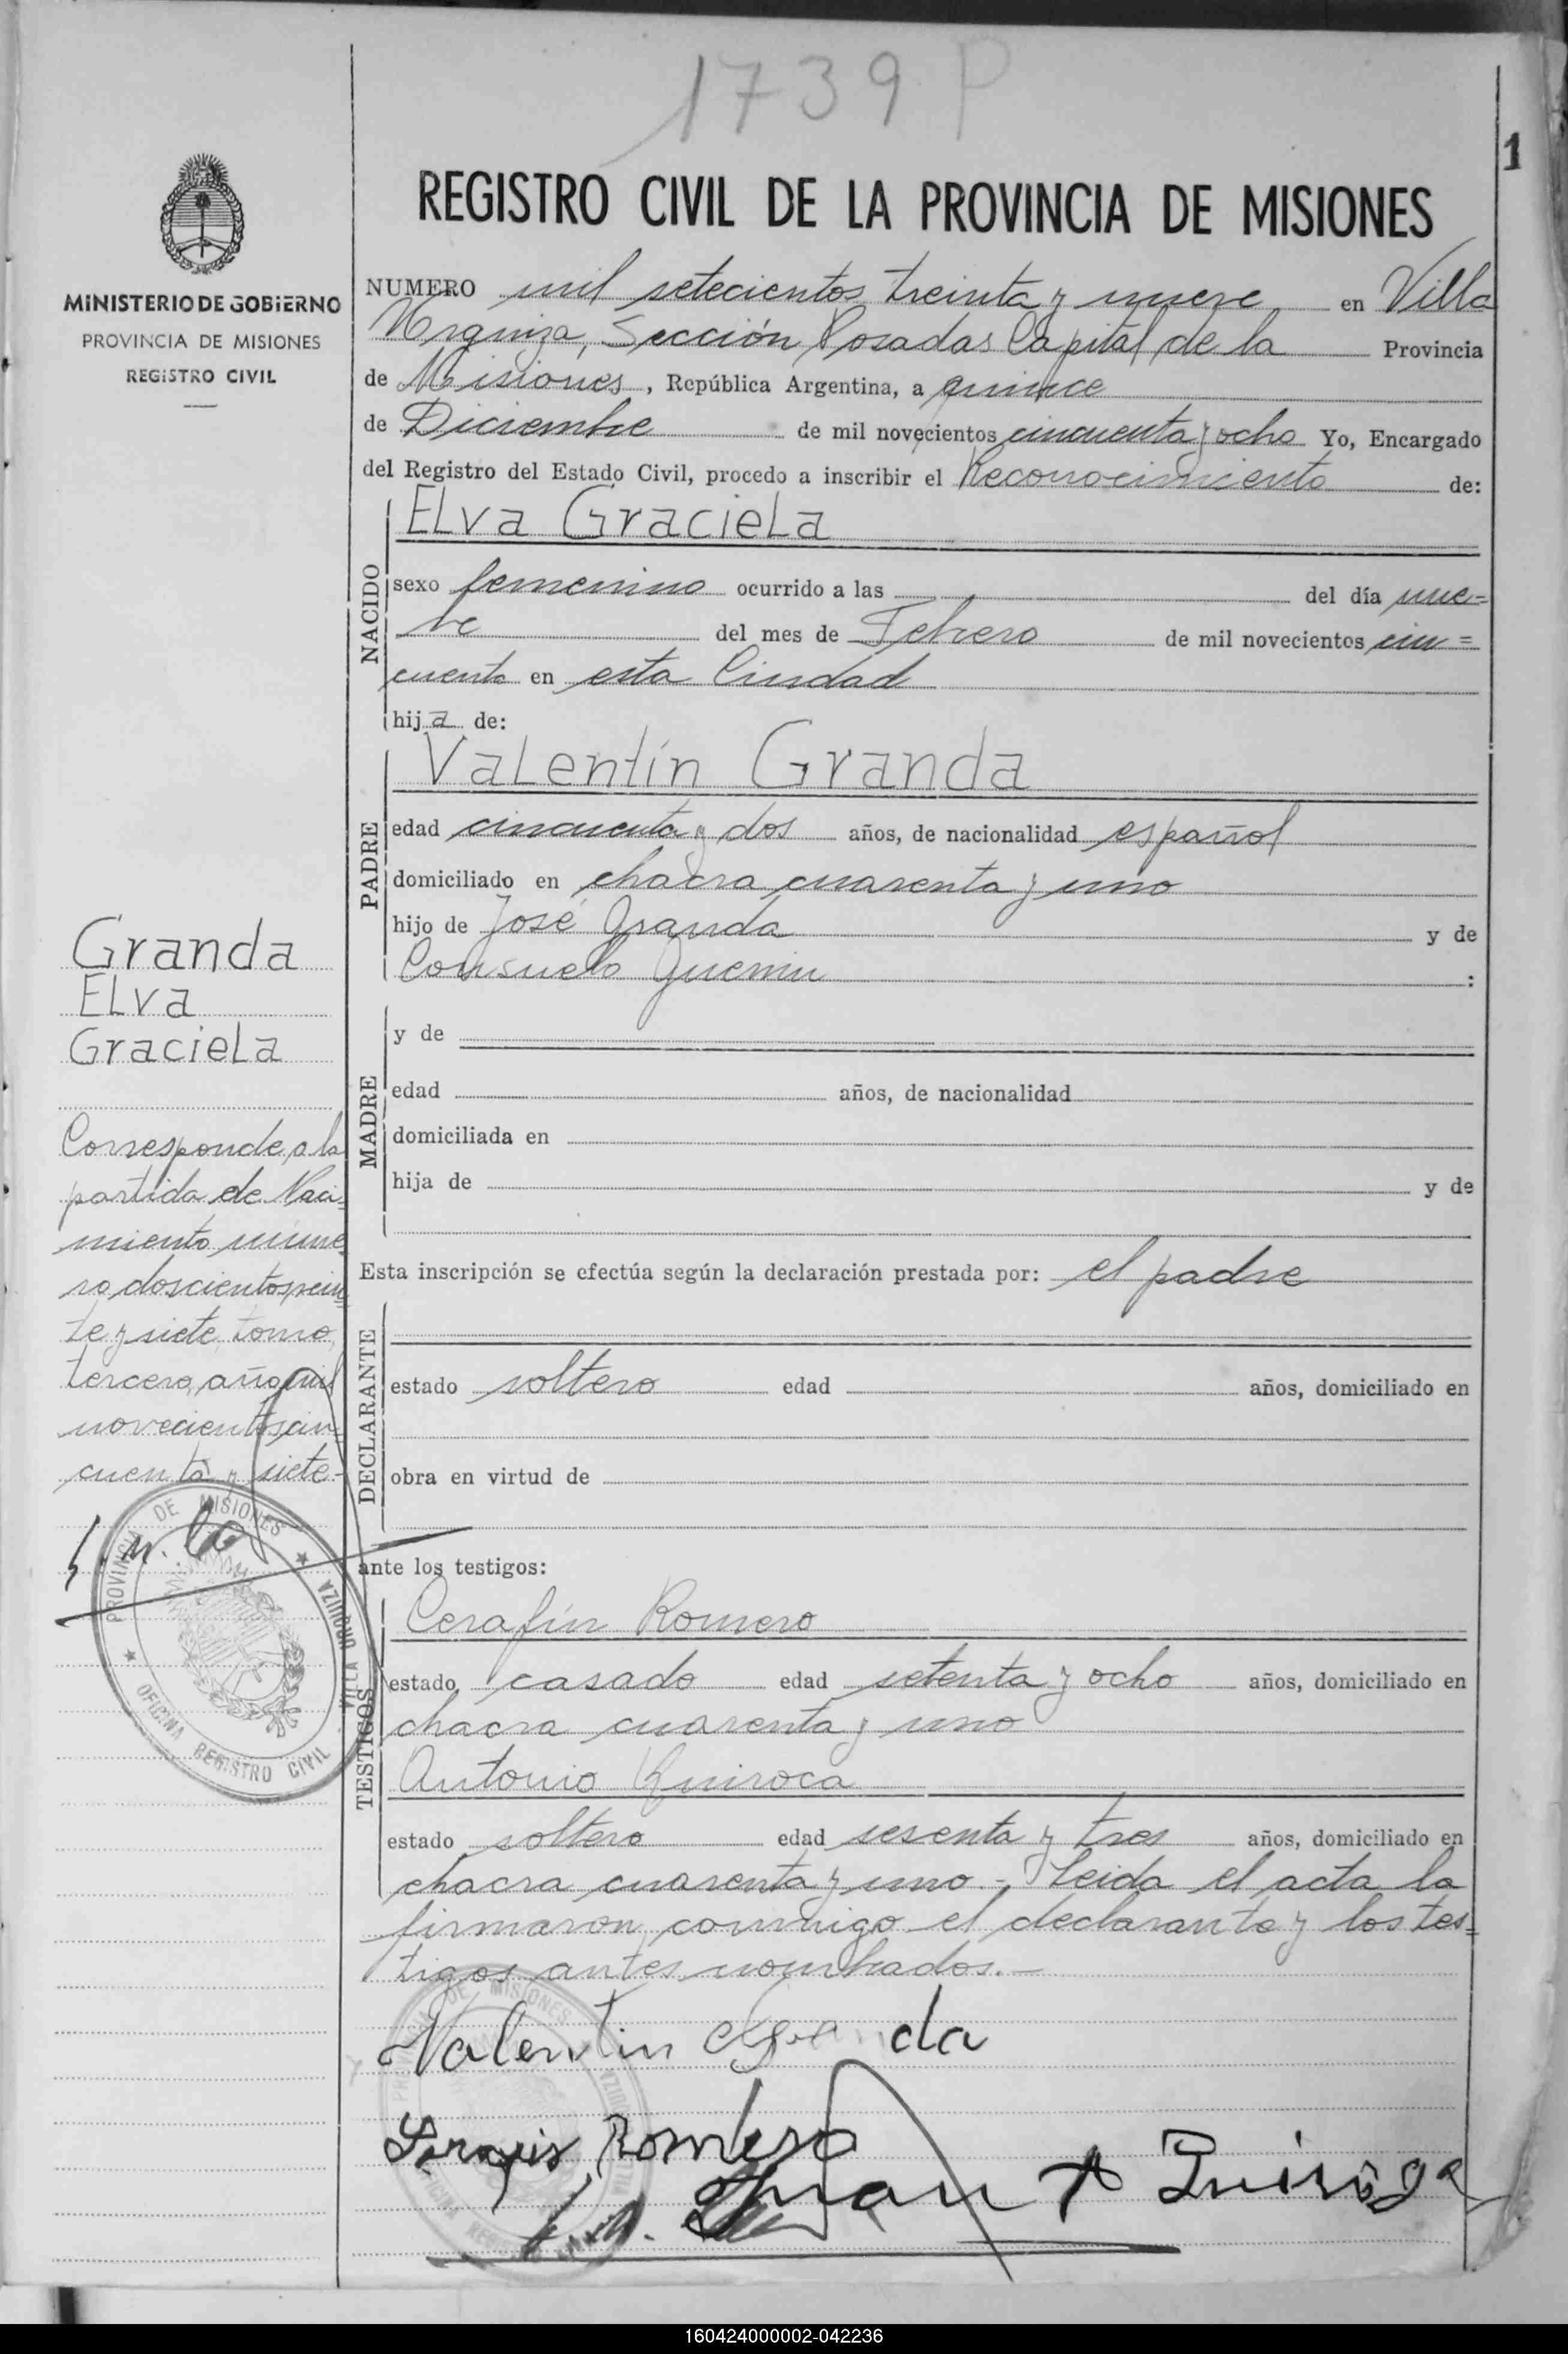 1739 P
1
MINISTERIO DE GOBIERNO
PROVINCIA DE MISIONES
REGISTRO CIVIL
REGISTRO CIVIL DE LA PROVINCIA DE MISIONES
NUMERO mil setecientos treinta y nueve en Villa
Urquiza, Sección Posadas Capital de la Provincia
de Misiones, República Argentina, a quince
de Diciembre de mil novecientos cincuenta y ocho Yo, Encargado
del Registro del Estado Civil, procedo a inscribir el Reconocimiento de:
NACIDO
Elva Graciela
sexo femenino ocurrido a las del día nue=
ve del mes de Febrero de mil novecientos cin=
cuenta en esta Ciudad
hija de:
PADRE
Valentín Granda
edad cincuenta y dos años, de nacionalidad español
domiciliado en chacra cuarenta y uno
hijo de José Granda y de
Consuelo :
MADRE
y de
edad años, de nacionalidad
domiciliada en
hija de y de
Esta inscripción se efectúa según la declaración prestada por: el padre
DECLARANTE
estado soltero edad años, domiciliado en
obra en virtud de
ante los testigos:
TESTIGOS
Cerafín Romero
estado casado edad setenta y ocho años, domiciliado en
chacra cuarenta y uno
Antonio Quiroca
estado soltero edad sesenta y tres años, domiciliado en
chacra cuarenta y uno.- Leida el acta la
firmaron conmigo el declarante y los tes=
tigos antes nombrados.-
Valentin Granda
Romero
Juan A Quiroga
Granda
Elva
Graciela
Corresponde a la
partida de Naci=
miento núme
ro doscientos vein
te y siete, tomo
tercero, año mil
novecientos cin
cuenta y siete-
PROVINCIA DE MISIONES
VILLA URQUIZA
OFICINA REGISTRO CIVIL
160424000002-042236